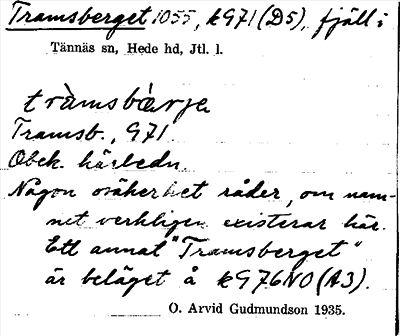 Tramsberget 1055, k971 (D5), fjäll i
Tännäs sn, Hede hd, Jtl. l.
tràmsbàrje
Tramsb., 971.
Obek. härledn.
Någon osäkerhet råder, om nam-
net verkligen existerar här.
Ett annat "Tramsberget"
är beläget å k976NO (A3).
O. Arvid Gudmundson 1935.